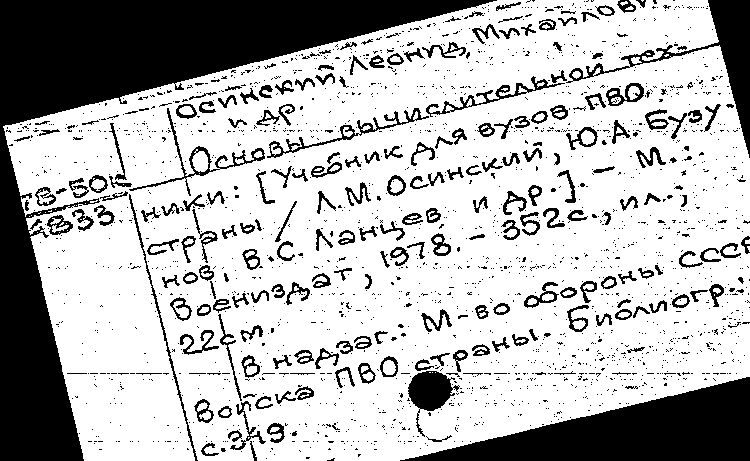 Осинский, Леонид Михайлови
и др.
Основы вычислительной тех-
78-50
4833
ники: [Учебник для вузов ПВО
страны / Л.М. Осинский, Ю.А. Бузу-
нов, В.С. Ланцев и др.]. – М.:
Воениздат, 1978. – 352с., ил.;
22см.
В надзаг.: М-во обороны СССР
Войска ПВО страны. Библиогр.:
с.349.